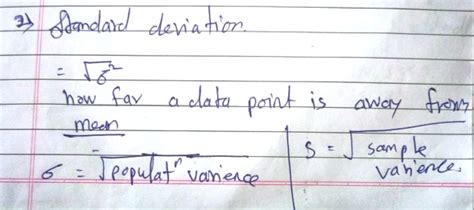 3) Standard deviation.
= √σ²
how far a data point is away from
mean
σ = √populatⁿ varience
S = √sample
varience.